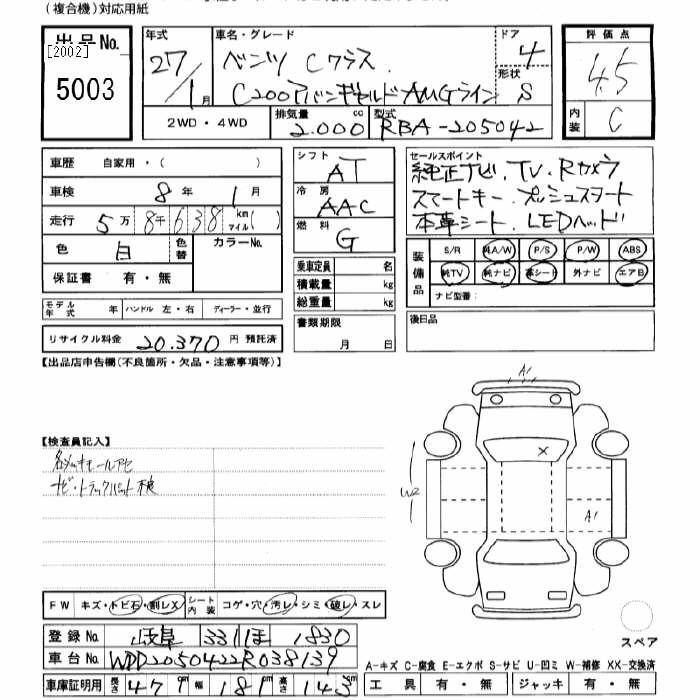 (複合機)対応用紙
出品No. [2002] 5003
年式 27/1月
車名・グレード ベンツ Cクラス
C200アバンギャルド AMGライン
ドア 4
形状 S
評価点 4.5
内装 C
2WD・4WD
排気量 2.000 cc
型式 RBA-205042
車歴 自家用・( )
車検 8年 1月
走行 5万8千638 km マイル( )
色 白 色替 カラーNo.
保証書 有・無
シフト AT
冷房 AAC
燃料 G
乗車定員 名
積載量 kg
総重量 kg
セールスポイント
純正ナビ、TV、Rカメラ
スマートキー、プッシュスタート
本革シート、LEDヘッド
装備品 S/R 純A/W P/S P/W ABS
純TV 純ナビ 革シート 外ナビ エアB
ナビ型番:
モデル年式 年 ハンドル 左・右 ディーラー・並行
書類期限 月 日
後日品
リサイクル料金 20.370 円 預託済
【出品店申告欄(不良箇所・欠品・注意事項等)】
A1
【検査員記入】
ナビ・トラックパット
X
W2
A1
FW キズ・トビ石・割レX シート内装 コゲ・穴・汚レ・シミ・破レ・スレ
登録No. 岐阜 331 ほ 1830
車台No. WDD2050422R038139
スペア
A-キズ C-腐食 E-エクボ S-サビ U-凹ミ W-補修 XX-交換済
車庫証明用 長さ 479 幅 181 高さ 143
工具 有・無 ジャッキ 有・無